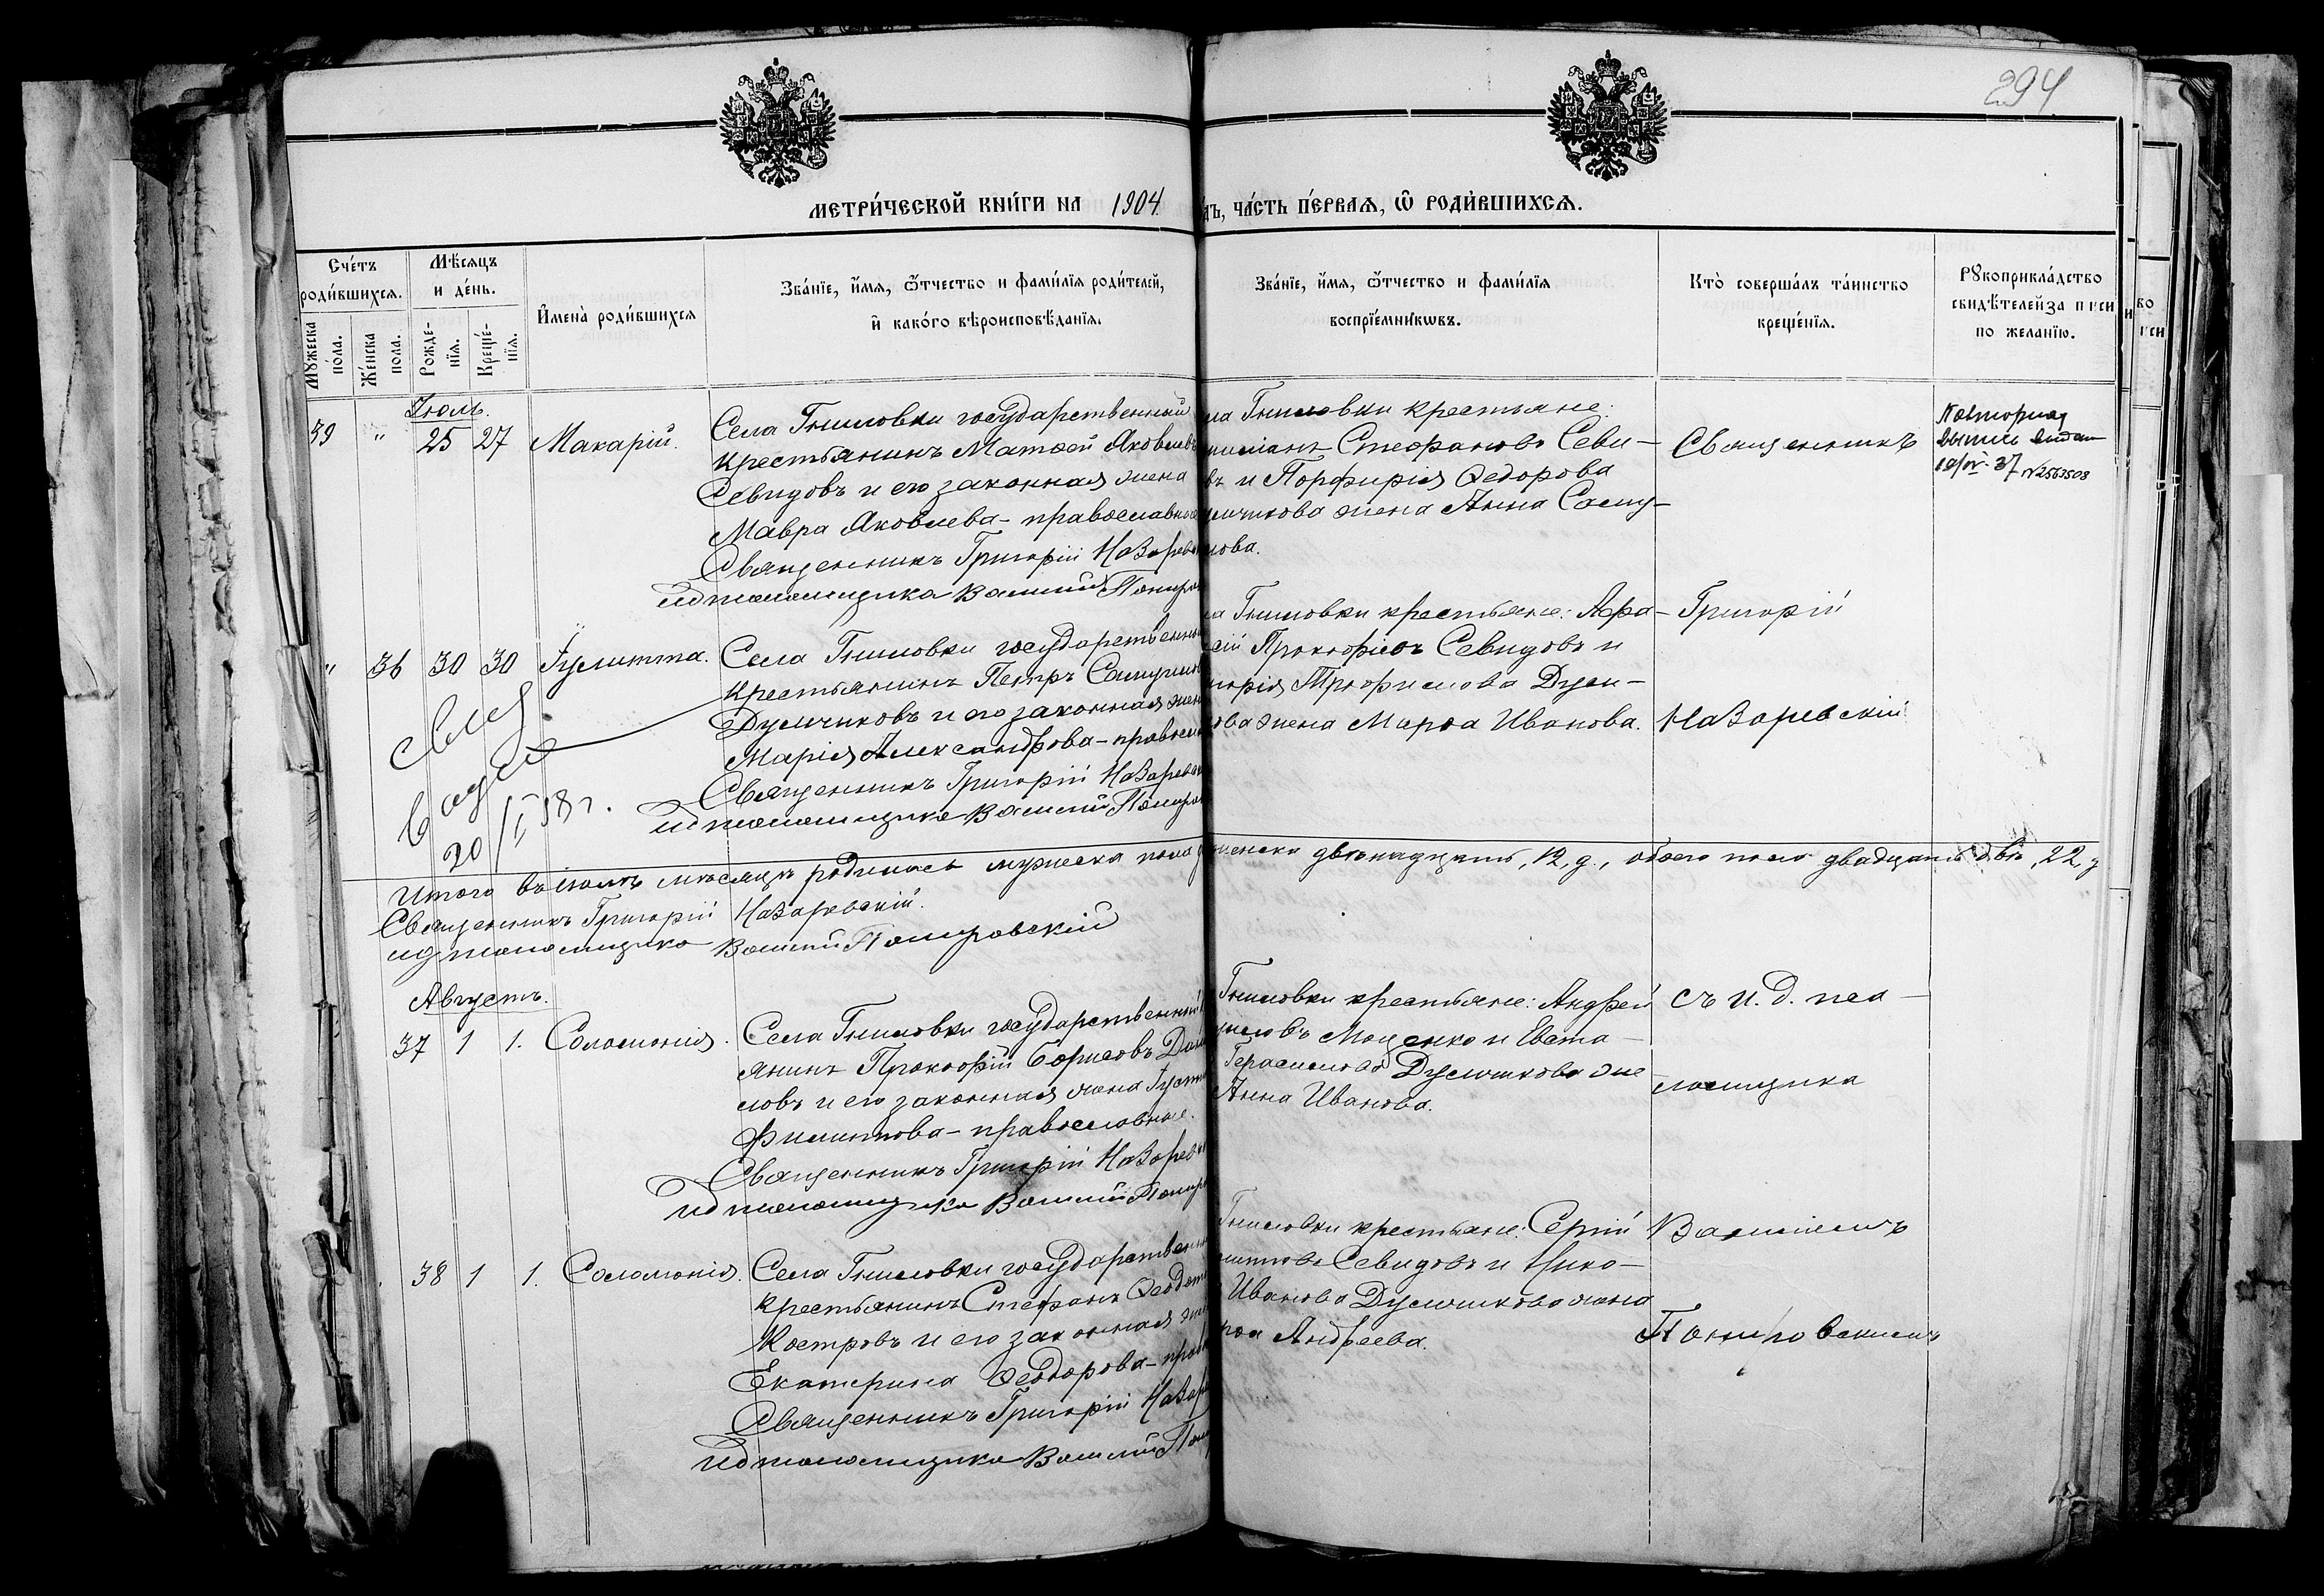 294
МЕТРИ́ЧЕСКОЙ КНИ́ГИ НА 1904
ДЪ, ЧА́СТЬ ПЕ́РВАѦ, Ѽ РОДИ́ВШИХСѦ.
Сче́тъ роди́вшихсѧ.
Мꙋ́жеска по́ла.
Же́нска пола.
Мѣ́сѧцъ и де́нь.
Рожде́нїѧ.
Креще́нїѧ.
И҆мена̀ роди́вшихсѧ
Зва́нїе, и҆́мѧ, ѻ҆́тчество и фами́лїѧ роди́телей,
и҆ како́гѡ вѣроисповѣ́данїѧ.
Зва́нїе, и҆́мѧ, ѻ҆́тчество и фами́лїѧ
воспрїе́мникѡвъ.
Кто̀ соверша́лъ та́инство
креще́нїѧ.
Рꙋкоприкла́дство
свидѣ́телей за писи
по жела́нїю.
Іюль.
39 " 25 27 Макарій.
Села Гниловки государственный
крестьянинъ Матѳей Яковлевъ
Севидовъ и его законная жена
Мавра Яковлева - православные
Священникъ Григорій Назаревс
ид псаломщика Василій
ла Гниловки крестьяне:
Стефановъ Севи-
въ и Порфирія Ѳедорова
жена Анна Саму-
лова.
Священникъ
Повторная
выпись выдан
19/IV-37 N 2563508
" 36 30 30 Іулитта.
Села Гниловки государственны
крестьянинъ Петръ Самуилов
Думчиковъ и его законная жена
Марія Александрова - правосла
Священникъ Григорій Назаревск
ид псаломщика Василій
ла Гниловки крестьяне: Аѳа-
сій Прокофіевъ Севидовъ и
Трофимова Думч-
ова жена Марѳа Иванова.
Григорій
Назаревскій
20/I 58 г.
Итого въ Іюлѣ мѣсяцѣ родилось мужеска пола
женска двѣнадцать, 12, д., обоего пола двадцать двѣ, 22, д
Священникъ Григорій Назаревскій.
ид псаломщика Василій
Августъ.
37 1 1. Соломонія.
Села Гниловки государственный
янинъ Прокофій Борисовъ
ловъ и его законная жена Іуст
Филиппова - православные.
Священникъ Григорій Назарев
ид псаломщика Василій
Гниловки крестьяне: Андрей
Моценко и Евста-
Герасимова Думчикова же
Анна Иванова.
съ и. д. пса-
ломщика
38 1 1. Соломонія.
Села Гниловки государствен
крестьянинъ Стефанъ Ѳеодот
Костровъ и его законная же
Екатерина Ѳеодорова - прав
Священникъ Григорій Назар
ид псаломщика Василій
Гниловки крестьяне: Сергій
Севидовъ и Нико-
Иванова Думчикова жена
Андреева.
Василіемъ